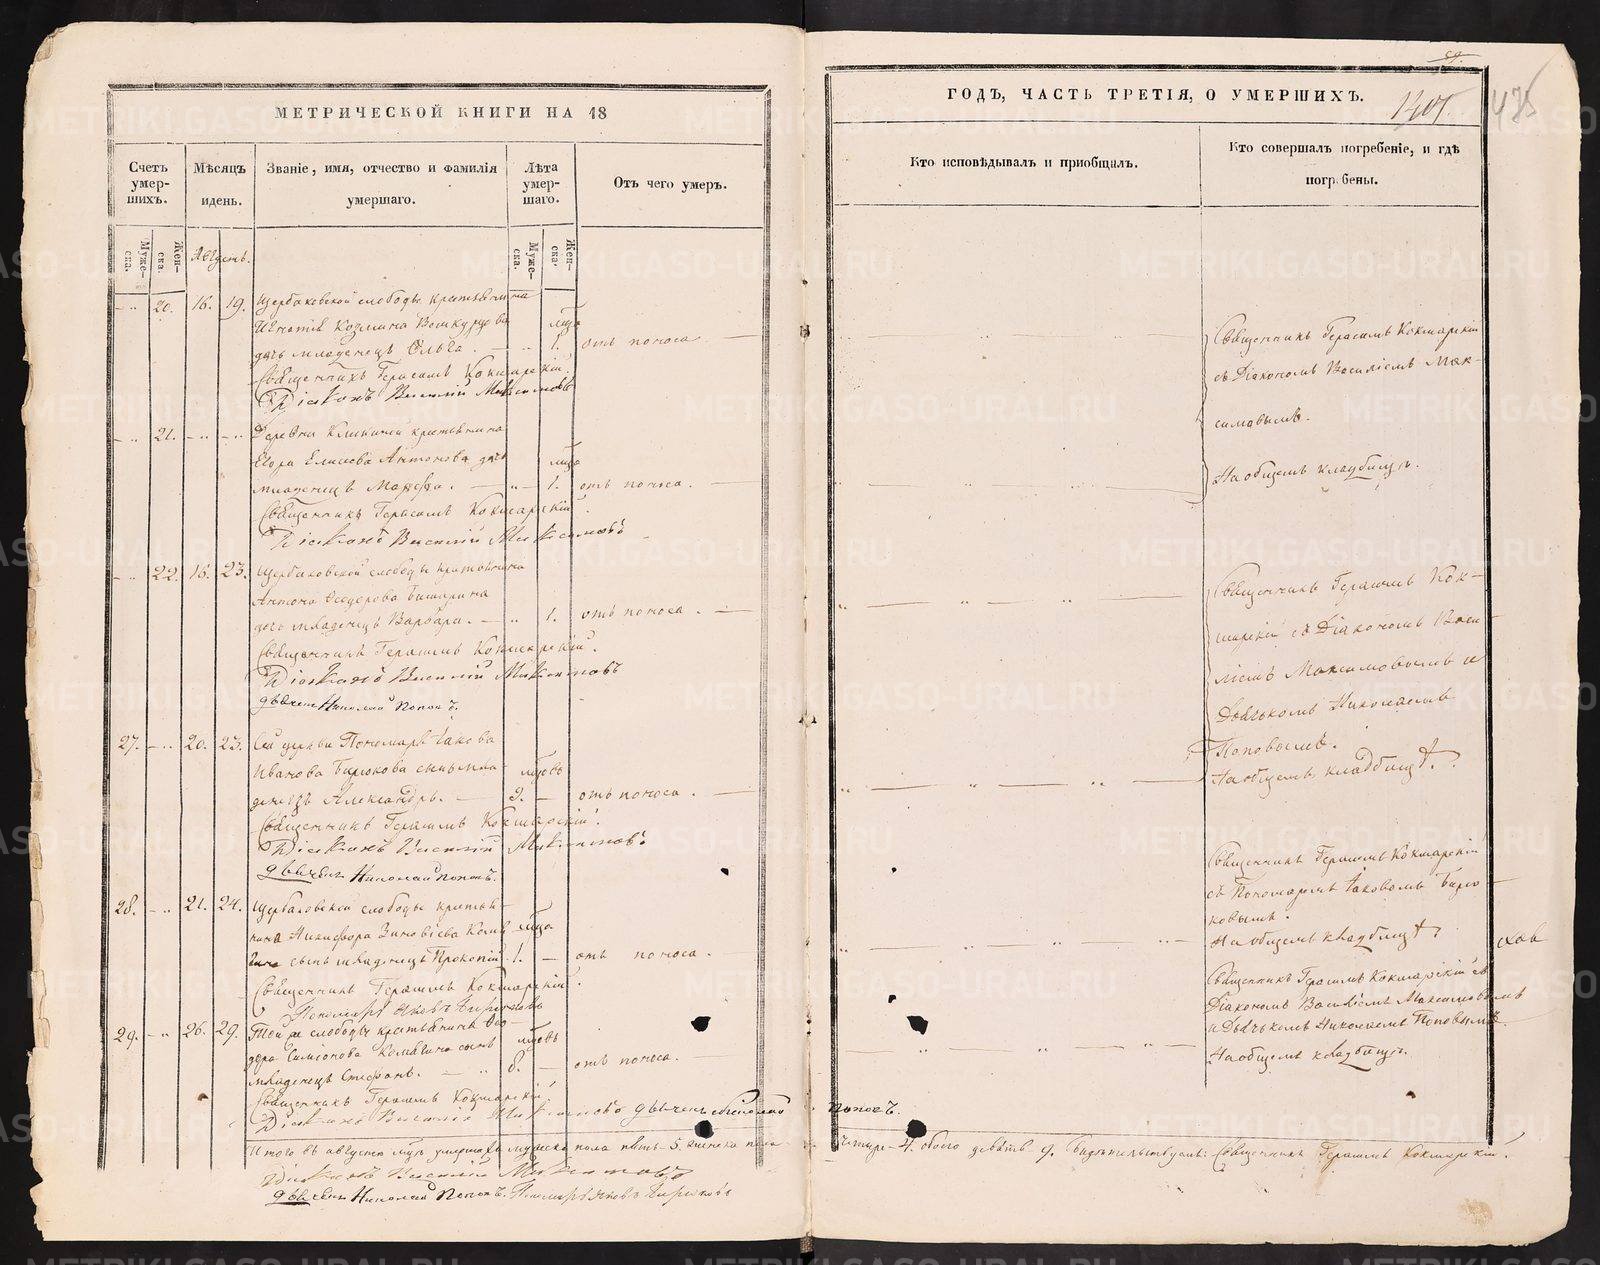 МЕТРИЧЕСКОЙ КНИГИ НА 18
Счетъ умер-шихъ.
Мѣсяцъ идень.
Званіе, имя, отчество и фамилія умершаго.
Лѣта умер-шаго.
Отъ чего умеръ.
Муже-ска.
Жен-ска.
Августъ.
Муже-ска.
Жен-ска.
20. 16. 19. Щербаковской слободы крестьянина
Игнатія Козмина
дочь младенецъ Ольга. 1. отъ поноса
Священникъ Герасимъ Кокшарскій.
Діаконъ Василій Максимовъ
21. Деревни крестьянина
Егора Елисѣева Антонова дочь
младенецъ Марфа. 1. отъ поноса.
Священникъ Герасимъ Кокшарскій.
Діаконъ Василій Максимовъ
22. 16. 23. Щербаковской слободы крестьянина
Антона Федорова
дочь младенецъ Варвара. 1. отъ поноса.
Священникъ Герасимъ Кокшарскій.
Діаконъ Василій Максимовъ
дьячекъ Николай Поповъ.
27. 20. 23. Сей церкви Пономаря Іакова
Иванова Бирюкова сынъ мла-
денецъ Александръ. 9. отъ поноса.
Священникъ Герасимъ Кокшарскій.
Діаконъ Василій Максимовъ
дьячекъ Николай Поповъ.
28. 21. 24. Щербаковской слободы крестья-
нина Никифора Зиновіева
сынъ младенецъ Прокопій. 1. отъ поноса.
Священникъ Герасимъ Кокшарскій.
Пономарь Яковъ Бирюковъ
29. 26. 29. Той же слободы крестьянина Фео-
дора Симіонова сынъ
младенецъ Стефанъ. 8. отъ поноса.
Священникъ Герасимъ Кокшарскій
Діаконъ Василій Максимовъ дьячекъ Николай Поповъ.
Итого въ августѣ м. умершихъ мужеска пола пять 5. женска пола четыре 4. обоего девять 9. Свидѣтельствуемъ: Священникъ Герасимъ Кокшарскій.
Діаконъ Василій Максимовъ
дьячекъ Николай Поповъ. Пономарь Яковъ Бирюковъ
ГОДЪ, ЧАСТЬ ТРЕТІЯ, О УМЕРШИХЪ.
Кто исповѣдывалъ и пріобщалъ.
Кто совершалъ погребеніе, и гдѣ погребены.
Священникъ Герасимъ Кокшарскій
съ Діакономъ Василіемъ Мак-
симовымъ.
На общемъ кладбищѣ.
Священникъ Герасимъ Кок-
шарскій съ Діакономъ Васи-
ліемъ Максимовымъ и
Дьячкомъ Николаемъ
Поповымъ.
На общемъ кладбищѣ.
Священникъ Герасимъ Кокшарскій
съ Пономаремъ Іаковомъ Бирю-
ковымъ.
На общемъ кладбищѣ.
Священникъ Герасимъ Кокшарскій съ
Діакономъ Василіемъ Максимовымъ
и Дьячкомъ Николаемъ Поповымъ.
На общемъ кладбищѣ.
METRIKI.GASO-URAL.RU